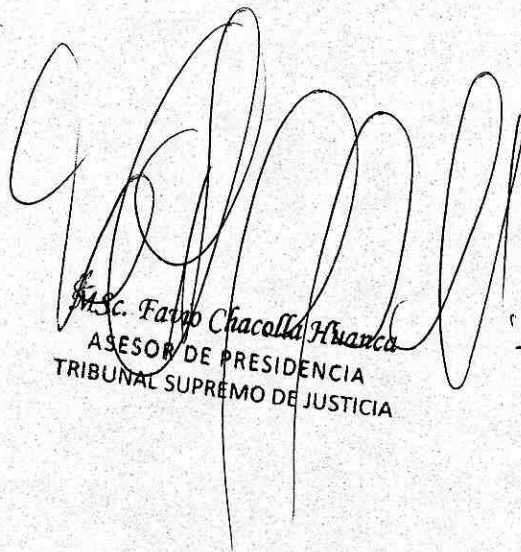 MSc. Favio Chacolla Huanca
ASESOR DE PRESIDENCIA
TRIBUNAL SUPREMO DE JUSTICIA